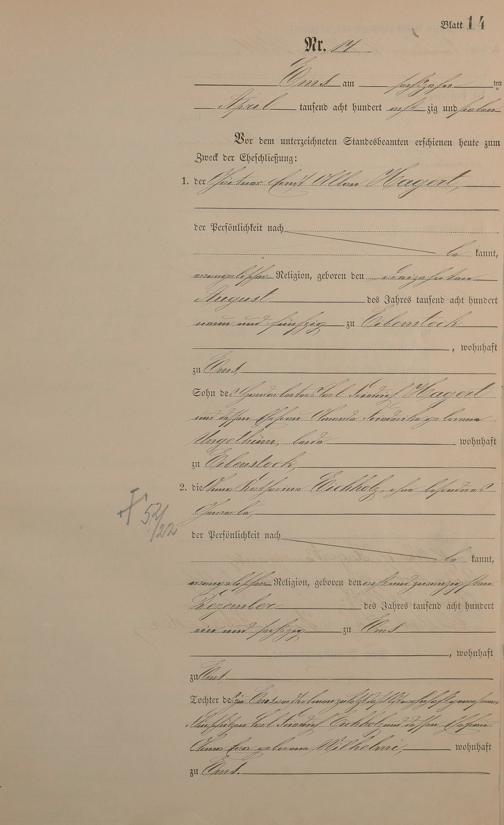 Blatt 14
Nr. 14
Ems am sechszehn ten
April tausend acht hundert acht zig und sieben
Vor dem unterzeichneten Standesbeamten erschienen heute zum
Zweck der Eheschließung:
1. der Gärtner Ernst Albin Hagert,
der Persönlichkeit nach
be kannt,
evangelischer Religion, geboren den dreizehnten
August des Jahres tausend acht hundert
neun und fünfzig zu Eibenstock
, wohnhaft
zu Ems
Sohn des Carl Hagert
und dessen Ehefrau geborene
beide wohnhaft
zu Eibenstock,
2. die Anna Katharina Eichholz, ohne besonderes
Gewerbe
der Persönlichkeit nach
be kannt,
evangelischer Religion, geboren den ein und zwanzigsten
Dezember des Jahres tausend acht hundert
ein und sechszig zu Ems
, wohnhaft
zu Ems
Tochter des zu Ems
Carl Eichholz und dessen Ehefrau
geborene Wilhelmi, wohnhaft
zu Ems.
† 52/22